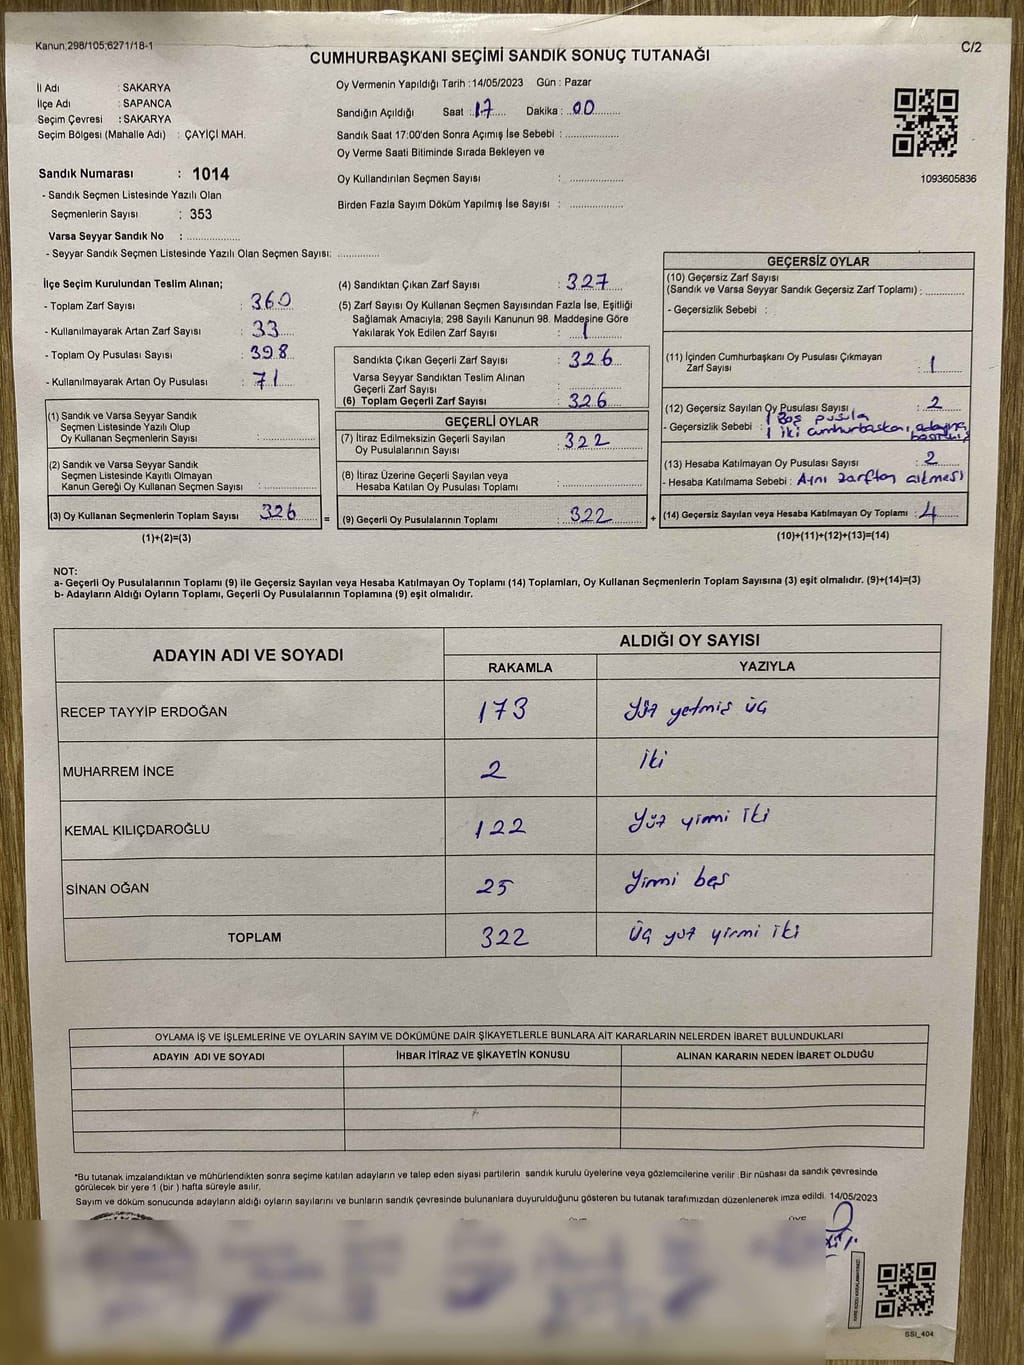 Kanun,298/105;6271/18-1
C/2
CUMHURBAŞKANI SEÇİMİ SANDIK SONUÇ TUTANAĞI
İl Adı : SAKARYA
İlçe Adı : SAPANCA
Seçim Çevresi : SAKARYA
Seçim Bölgesi (Mahalle Adı) : ÇAYİÇİ MAH.
Sandık Numarası : 1014
- Sandık Seçmen Listesinde Yazılı Olan
Seçmenlerin Sayısı : 353
Varsa Seyyar Sandık No : ..................
- Seyyar Sandık Seçmen Listesinde Yazılı Olan Seçmen Sayısı: ..............
Oy Vermenin Yapıldığı Tarih : 14/05/2023 Gün : Pazar
Sandığın Açıldığı Saat : 17 Dakika : 00
Sandık Saat 17:00'den Sonra Açımış İse Sebebi : ..................
Oy Verme Saati Bitiminde Sırada Bekleyen ve
Oy Kullandırılan Seçmen Sayısı : ..................
Birden Fazla Sayım Döküm Yapılmış İse Sayısı : ..................
1093605836
İlçe Seçim Kurulundan Teslim Alınan;
- Toplam Zarf Sayısı : 360
- Kullanılmayarak Artan Zarf Sayısı : 33
- Toplam Oy Pusulası Sayısı : 398
- Kullanılmayarak Artan Oy Pusulası : 71
(1) Sandık ve Varsa Seyyar Sandık
Seçmen Listesinde Yazılı Olup
Oy Kullanan Seçmenlerin Sayısı : ..................
(2) Sandık ve Varsa Seyyar Sandık
Seçmen Listesinde Kayıtlı Olmayan
Kanun Gereği Oy Kullanan Seçmen Sayısı : ..................
(3) Oy Kullanan Seçmenlerin Toplam Sayısı 326
(1)+(2)=(3)
(4) Sandıktan Çıkan Zarf Sayısı : 327
(5) Zarf Sayısı Oy Kullanan Seçmen Sayısından Fazla İse, Eşitliği
Sağlamak Amacıyla; 298 Sayılı Kanunun 98. Maddesine Göre
Yakılarak Yok Edilen Zarf Sayısı : 1
Sandıkta Çıkan Geçerli Zarf Sayısı : 326
Varsa Seyyar Sandıktan Teslim Alınan
Geçerli Zarf Sayısı : ..................
(6) Toplam Geçerli Zarf Sayısı : 326
GEÇERLİ OYLAR
(7) İtiraz Edilmeksizin Geçerli Sayılan
Oy Pusulasının Sayısı : 322
(8) İtiraz Üzerine Geçerli Sayılan veya
Hesaba Katılan Oy Pusulası Toplamı : ..................
= (9) Geçerli Oy Pusulalarının Toplamı : 322 +
GEÇERSİZ OYLAR
(10) Geçersiz Zarf Sayısı
(Sandık ve Varsa Seyyar Sandık Geçersiz Zarf Toplamı) : ..............
- Geçersizlik Sebebi :
(11) İçinden Cumhurbaşkanı Oy Pusulası Çıkmayan
Zarf Sayısı : 1
(12) Geçersiz Sayılan Oy Pusulası Sayısı : 2
1 Boş pusula
- Geçersizlik Sebebi : 1 iki cumhurbaşkanı adayına
basılmış
(13) Hesaba Katılmayan Oy Pusulası Sayısı : 2
- Hesaba Katılmama Sebebi : Aynı zarftan çıkması
(14) Geçersiz Sayılan veya Hesaba Katılmayan Oy Toplamı : 4
(10)+(11)+(12)+(13)=(14)
NOT:
a- Geçerli Oy Pusulalarının Toplamı (9) ile Geçersiz Sayılan veya Hesaba Katılmayan Oy Toplamı (14) Toplamları, Oy Kullanan Seçmenlerin Toplam Sayısına (3) eşit olmalıdır. (9)+(14)=(3)
b- Adayların Aldığı Oyların Toplamı, Geçerli Oy Pusulalarının Toplamına (9) eşit olmalıdır.
ADAYIN ADI VE SOYADI ALDIĞI OY SAYISI
RAKAMLA YAZIYLA
RECEP TAYYİP ERDOĞAN 173 Yüz yetmiş üç
MUHARREM İNCE 2 İki
KEMAL KILIÇDAROĞLU 122 Yüz yirmi iki
SİNAN OĞAN 25 Yirmi beş
TOPLAM 322 Üç yüz yirmi iki
OYLAMA İŞ VE İŞLEMLERİNE VE OYLARIN SAYIM VE DÖKÜMÜNE DAİR ŞİKAYETLERLE BUNLARA AİT KARARLARIN NELERDEN İBARET BULUNDUKLARI
ADAYIN ADI VE SOYADI İHBAR İTİRAZ VE ŞİKAYETİN KONUSU ALINAN KARARIN NEDEN İBARET OLDUĞU
*Bu tutanak imzalandıktan ve mühürlendikten sonra seçime katılan adayların ve talep eden siyasi partilerin sandık kurulu üyelerine veya gözlemcilerine verilir. Bir nüshası da sandık çevresinde
görülecek bir yere 1 (bir ) hafta süreyle asılır.
Sayım ve döküm sonucunda adayların aldığı oyların sayılarını ve bunların sandık çevresinde bulunanlara duyurulduğunu gösteren bu tutanak tarafımızdan düzenlenerek imza edildi. 14/05/2023
ÜYE
SSI_404